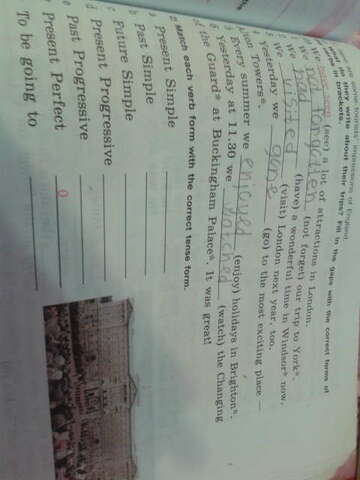 some tourists' impressions of England.
What do they write about their trips? Fill in the gaps with the correct forms of
brackets.
We (see) a lot of attractions in London.
We not forgoten (not forget) our trip to York*.
We had (have) a wonderful time in Windsor* now.
We visited (visit) London next year, too.
Yesterday we gone (go) to the most exciting place —
Towers*.
Every summer we enjoyed (enjoy) holidays in Brighton*.
Yesterday at 11.30 we watched (watch) the Changing
of the Guard* at Buckingham Palace*. It was great!
2 Match each verb form with the correct tense form.
Present Simple
b Past Simple
c Future Simple
d Present Progressive
e Past Progressive
Present Perfect
To be going to